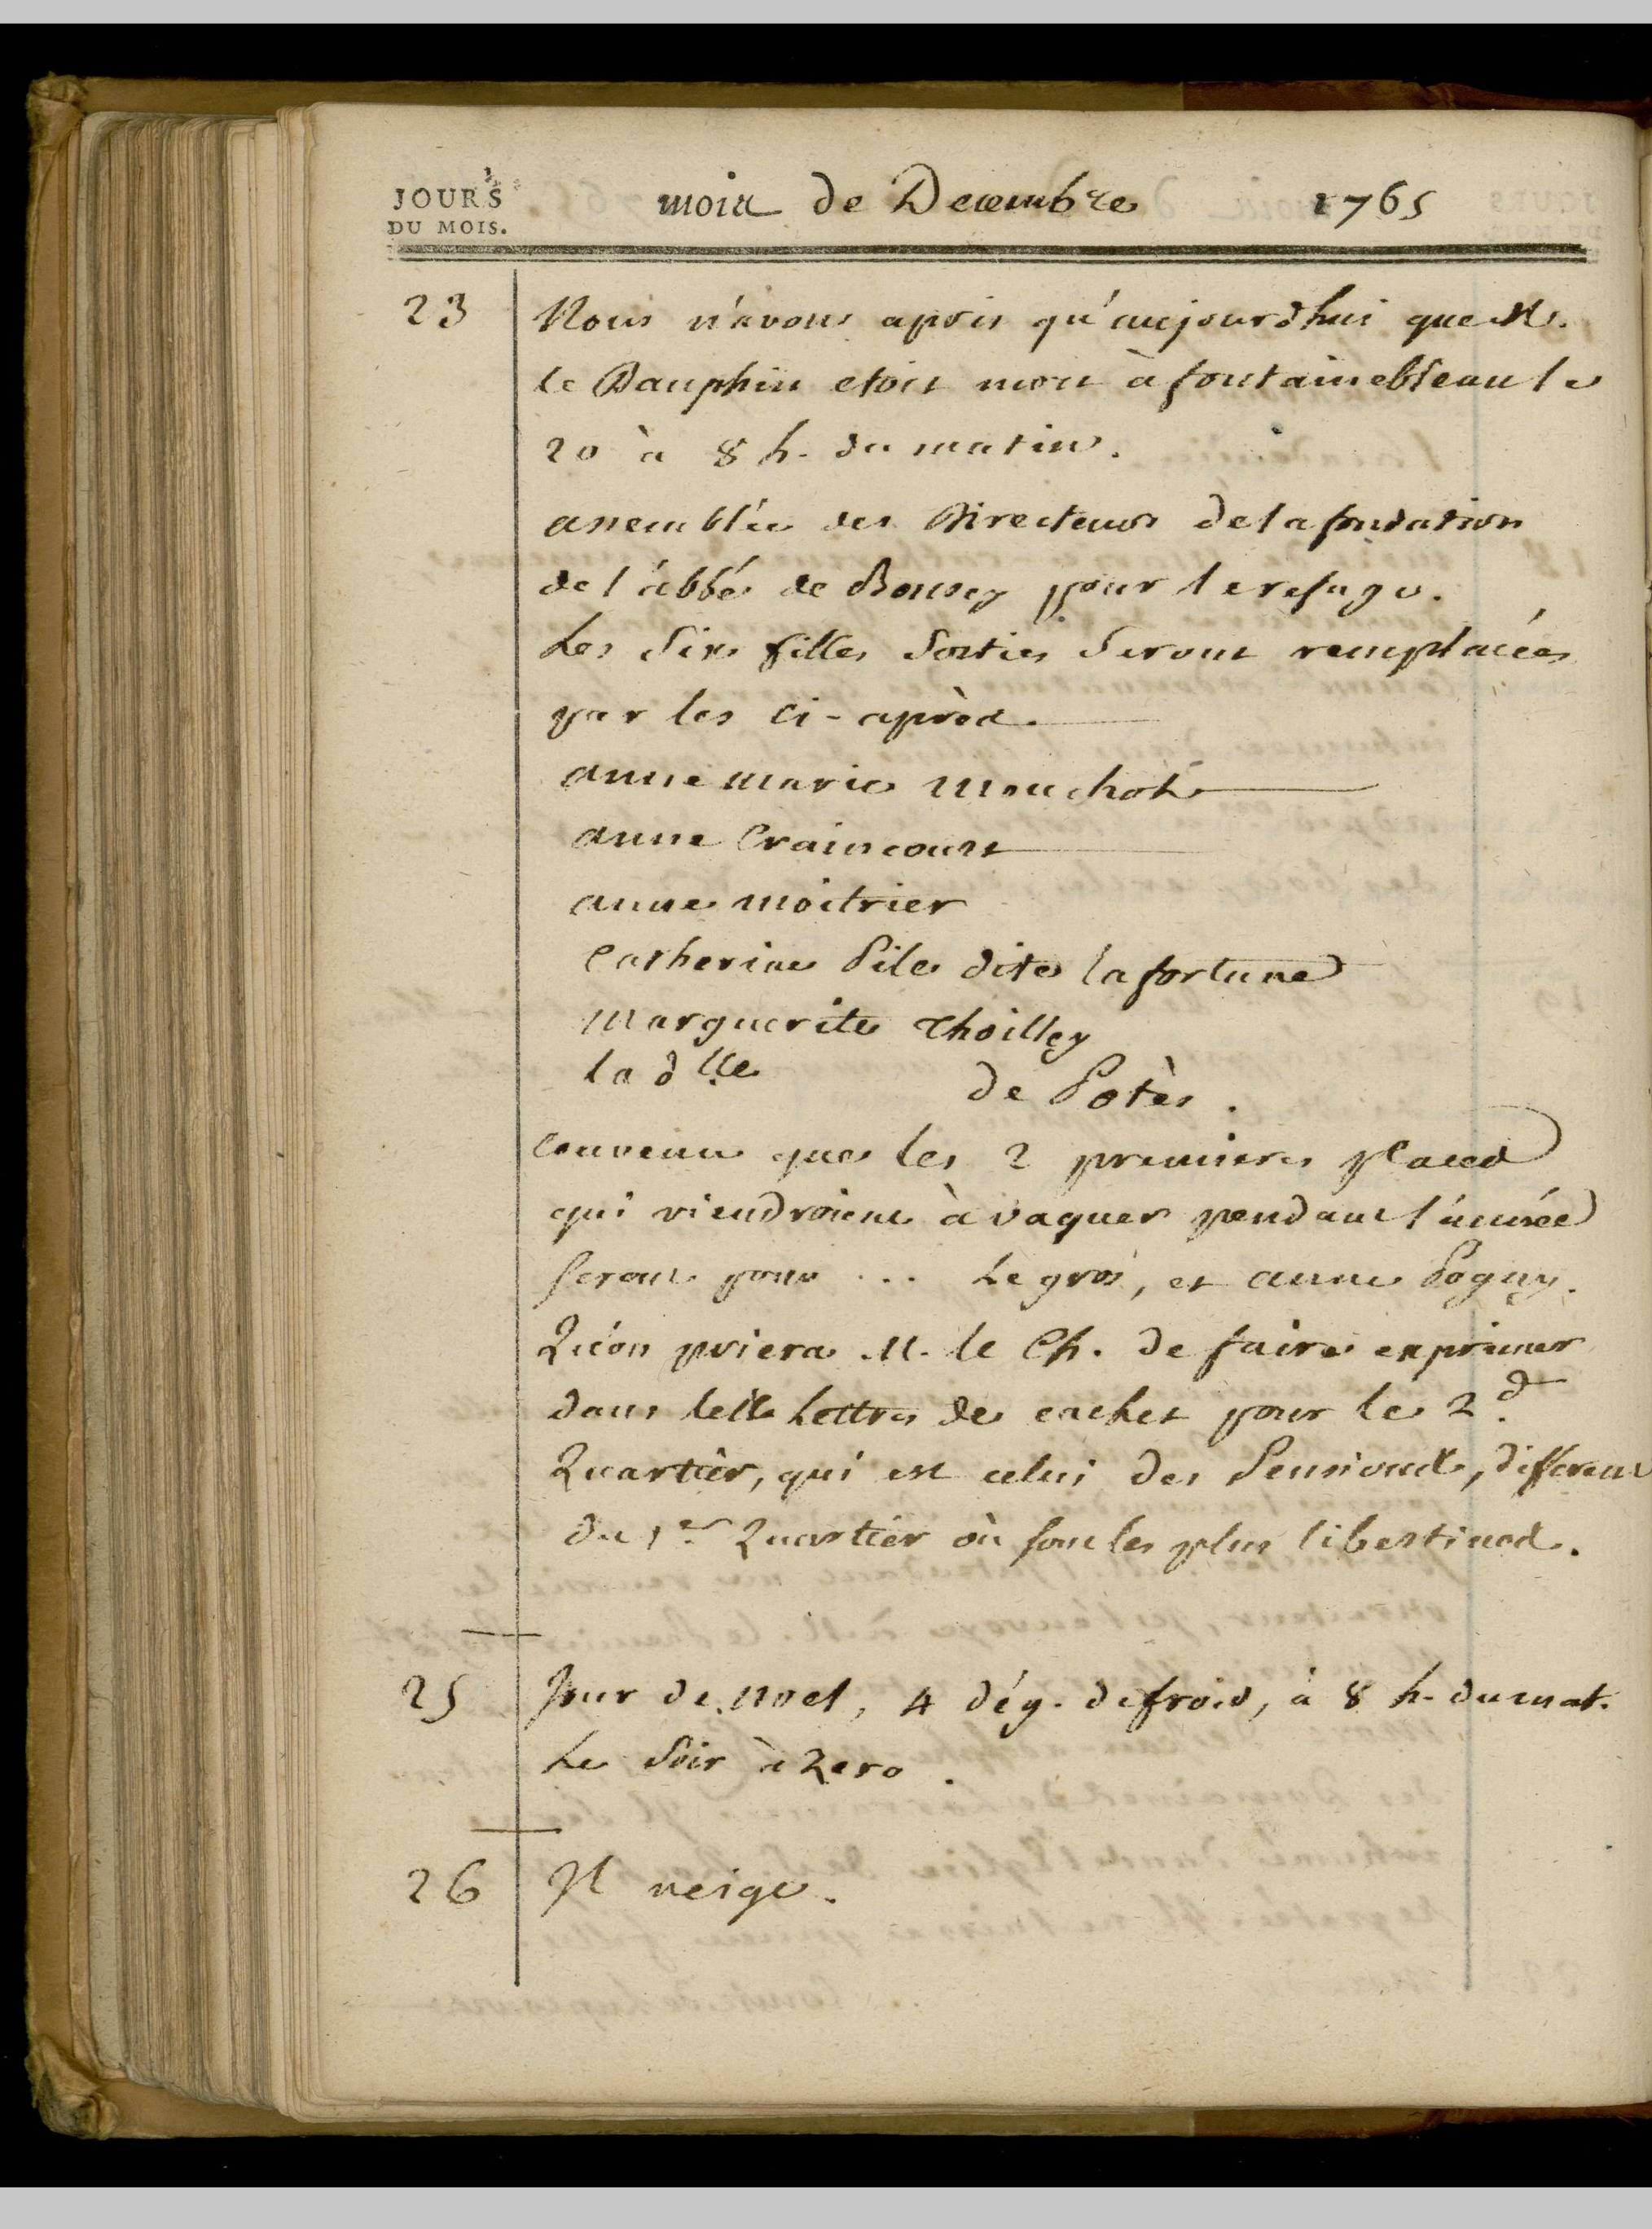 JOURS
DU MOIS.
mois de Decembre 1765
23 Nous n'avons apris qu'aujourdhui que M.
le Dauphin etoit mort à fontainebleau le
20 à 8 h. du matin.
assemblée des Directeurs de la fondation
de l'abbé de Bousey pour le refuge.
Les six filles sorties seront remplacées
par les ci-après.
anne marie Mouchot
anne Craincourt
anne moitrier
Catherine Pile dite la fortune
Marguerite Thoilley
la dlle de Potès.
convenu que les 2 premieres places
qui viendroient à vaquer pendant l'année
seront pour ... Legros, et anne Pogny.
Qu'on priera M. le Ch. de faire exprimer
dans les Lettres de cachet pour le 2.d
Quartier, qui est celui des Pensions, different
du 1.er Quartier où sont les plus libertines.
25 Jour de noel, 4 dég. de froid, à 8 h. du mat.
Le soir à zero.
26 Il neige.